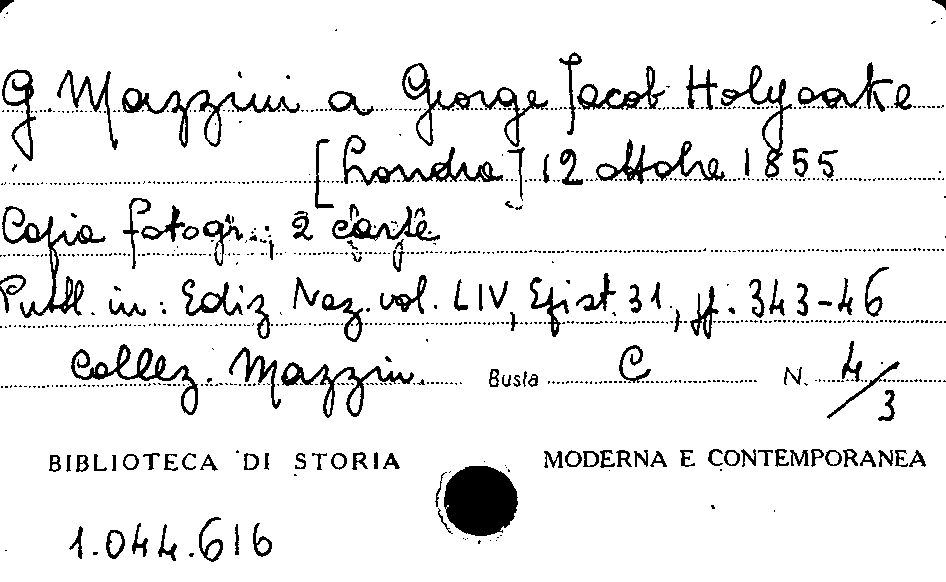 G. Mazzini a George Jacob Holyoake
[Londra] 12 ottobre 1855
Copia fotogr.; 2 carte
Pubbl. in: Ediz. Naz. vol. LIV, Epist. 31, pp. 343-46
Collez. Mazzini. Busta C N. 4/3
BIBLIOTECA DI STORIA MODERNA E CONTEMPORANEA
1.044.616